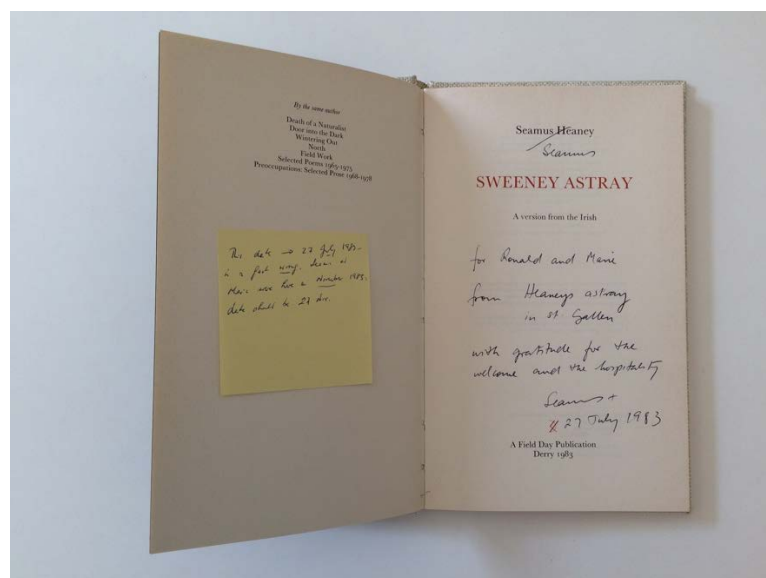 By the same author
Death of a Naturalist
Door into the Dark
Wintering Out
North
Field Work
Selected Poems 1965-1975
Preoccupations: Selected Prose 1968-1978
This date → 27 July 1983 -
is in fact wrong.
Marie were here in November 1983.
date should be 27
Seamus Heaney
Seamus
SWEENEY ASTRAY
A version from the Irish
for Ronald and Marie
from Heaneys astray
in St. Gallen
with gratitude for the
welcome and the hospitality
Seamus
27 July 1983
A Field Day Publication
Derry 1983